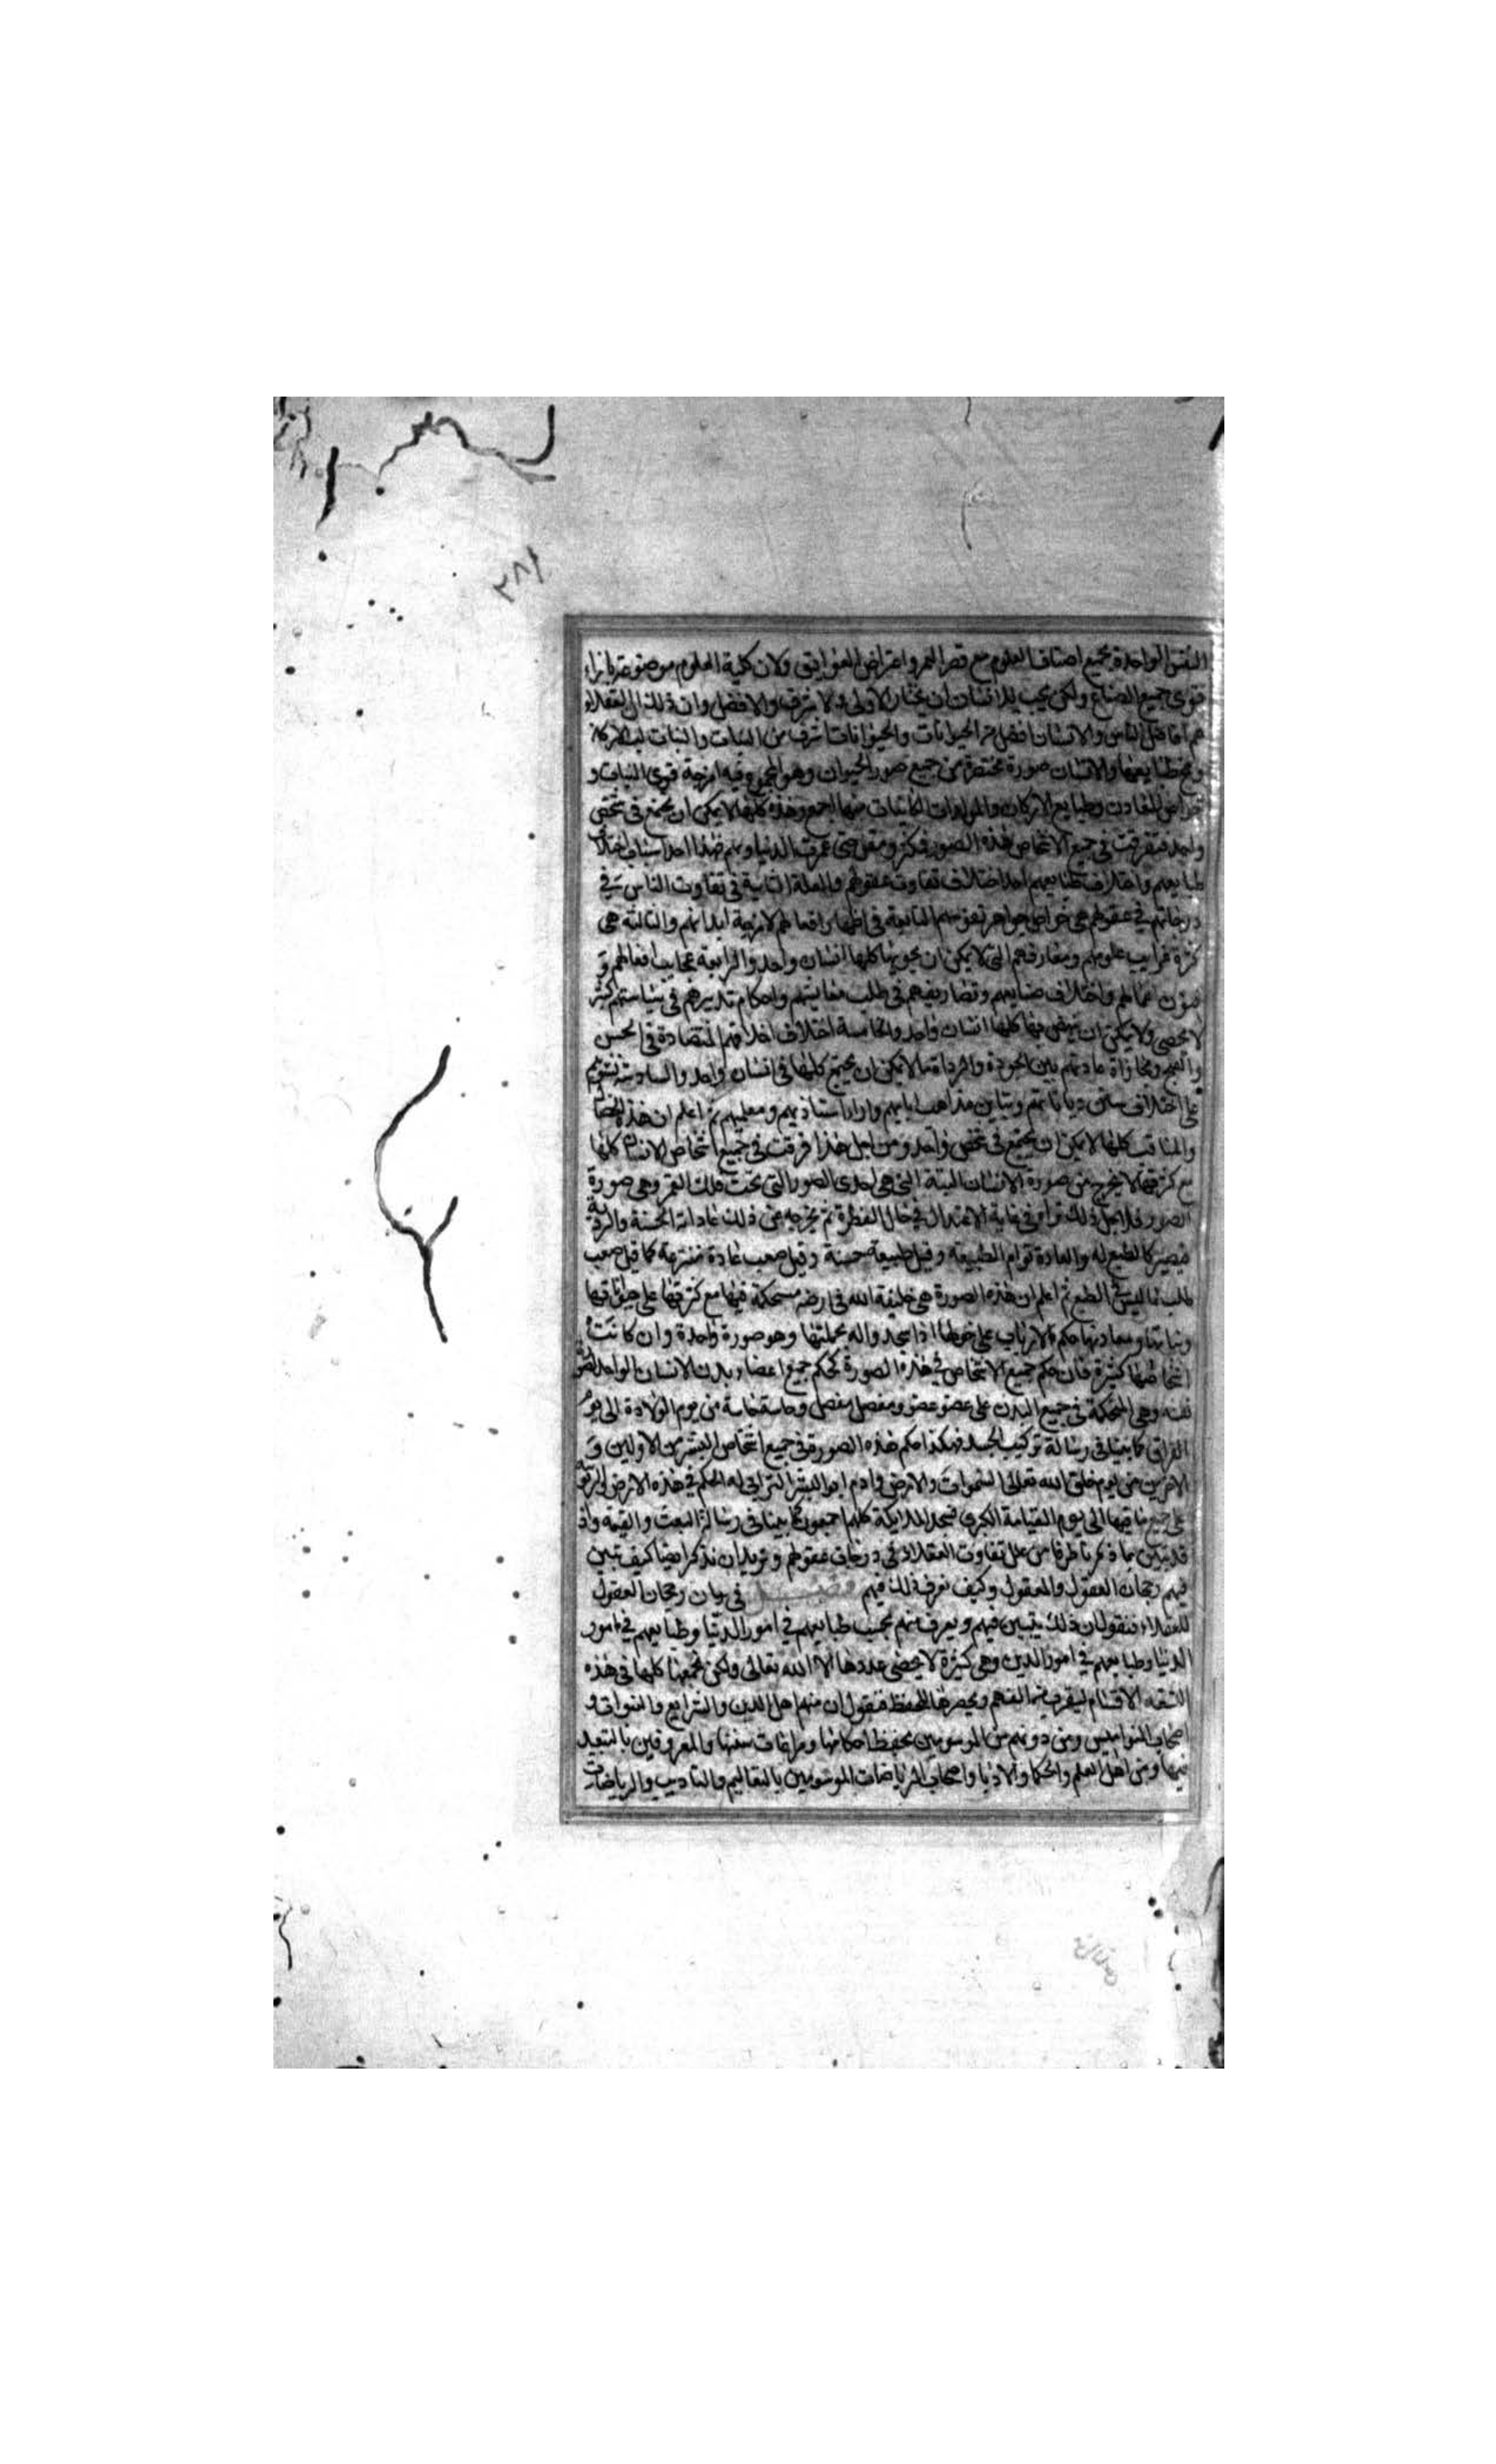 ٢٨١
النفس الواحدة بجميع اصناف العلوم مع قصر العمر واعتراض العوايق ولان كلية العلوم موضوعة بازاء
قوى جميع الصنايع ولكن يجب للانسان ان يختار الاولى والاشرف والافضل وان ذلك ان العقلاء
هم افاضل الناس والانسان افضل من الحيوانات والحيوانات اشرف من النبات والنبات لب الاركان
ومخ طبايعها والانسان صورة مختصرة من جميع صور الحيوان وهو المجموع فيه امزجة قوى النبات و
خواص المعادن وطبايع الاركان والمولدات الكاينات منها اجمع وهذه كلها لا يمكن ان يجتمع في شخص
واحد فتفرقت في جميع الاشخاص هذه الصور فكثر ومقل حتى عمرت الدنيا وبهم فهذا احد اسباب اختلاف
طبايعهم واختلاف طبايعهم احد اختلاف تفاوت عقولهم والعلة الثانية في تفاوت الناس في
درجاتهم في عقولهم هي خواص جواهر نفوسهم التابعة في اظهار افعالهم لامزجة ابدانهم والثالثة هي
كثرة غرايب علومهم ومعارفهم التي لا يمكن ان يحويها كلها انسان واحد والرابعة عجايب افعالهم و
فنون اعمالهم واختلاف صنايعهم وتصاريفهم في طلب معايشهم واحكام تدبيرهم في سياستهم كثير
لا يحصى ولا يمكن ان ينهض بها كلها انسان واحد والخامسة اختلاف اخلاقهم المتضادة في الحسن
والقبح ومجازاة عادتهم بين الجودة والرداة ما لا يمكن ان يجتمع كلها في انسان واحد والسادسة نشوهم
على اختلاف سنن دياناتهم وتباين مذاهب ابايهم واراء استاذيهم ومعلميهم ثم اعلم ان هذه الخصال
والمناقب كلها لا يمكن ان يجتمع في شخص واحد ومن اجل هذا فرقت في جميع اشخاص الانسان كلها
مع كثرتها لا يخرج من صورة الانسان البتة التي هي احدى الصور التي تحت فلك القمر وهي صورة
الصور فلاجل ذلك تراه في غاية الاعتدال في حال الفطرة ثم يخرجه عن ذلك عاداته الحسنة والردية
فيصير كالطبع له والعادة توام الطبيعة وقيل طبيعة حسنة وقيل صعب عادة منتزعة كما قيل صعب
طلب ما ليس في الطبع ثم اعلم ان هذه الصورة هي خليفة الله في ارضه متحكمة فيها مع كثرتها على حيوانها
ونباتها ومعادنها حكم الارباب على خولها اذا سجدوا له بجملتها وهو صورة واحدة وان كانت
اشخاصها كثيرة فان حكم جميع الاشخاص في هذه الصورة كحكم جميع اعضاء بدن الانسان الواحد لصورة
نفسه وهي المتحكمة في جميع البدن على عضو عضو ومفصل مفصل وحاسة حاسة من يوم الولادة الى يوم
الفراق كما بينا في رسالة تركيب الجسد فهكذا حكم هذه الصورة في جميع اشخاص البشر من الاولين و
الاخرين من يوم خلق الله تعالى السموات والارض وادم ابو البشر الترابي له الحكم في هذه الارض
على جميع ما فيها الى يوم القيامة الكبرى فسجد الملايكة كلهم اجمعون كما بينا في رسالة البعث والقيمة واذ
قد تبين بما ذكرنا طرفا من علل تفاوت العقلاء في درجات عقولهم ونريد ان نذكر ايضا كيف تبين
فيهم رجحان العقول والمعقول وكيف نعرف ذلك فيهم فصل في بيان رجحان العقول
للعقلاء فنقول ان ذلك يتبين فيهم ويعرف منهم بحسب طبايعهم في امور الدنيا وطبايعهم في امور
الدنيا وطبايعهم في امور الدين وهي كثيرة لا يحصى عددها الا الله تعالى ولكن نجمعها كلها في هذه
التسعة الاقسام ليقرب من الفهم ويحصرها للحفظ فنقول ان منهم اهل الدين والشرايع والنبوات و
اصحاب النواميس ومن دونهم من الموسومين بحفظ احكامها ومراعات سننها والمعروفين بالتعبد
فيها ومن اهل العلم والحكما والادبا واصحاب الرياضات الموسومين بالتعاليم والتاديب والرياضات